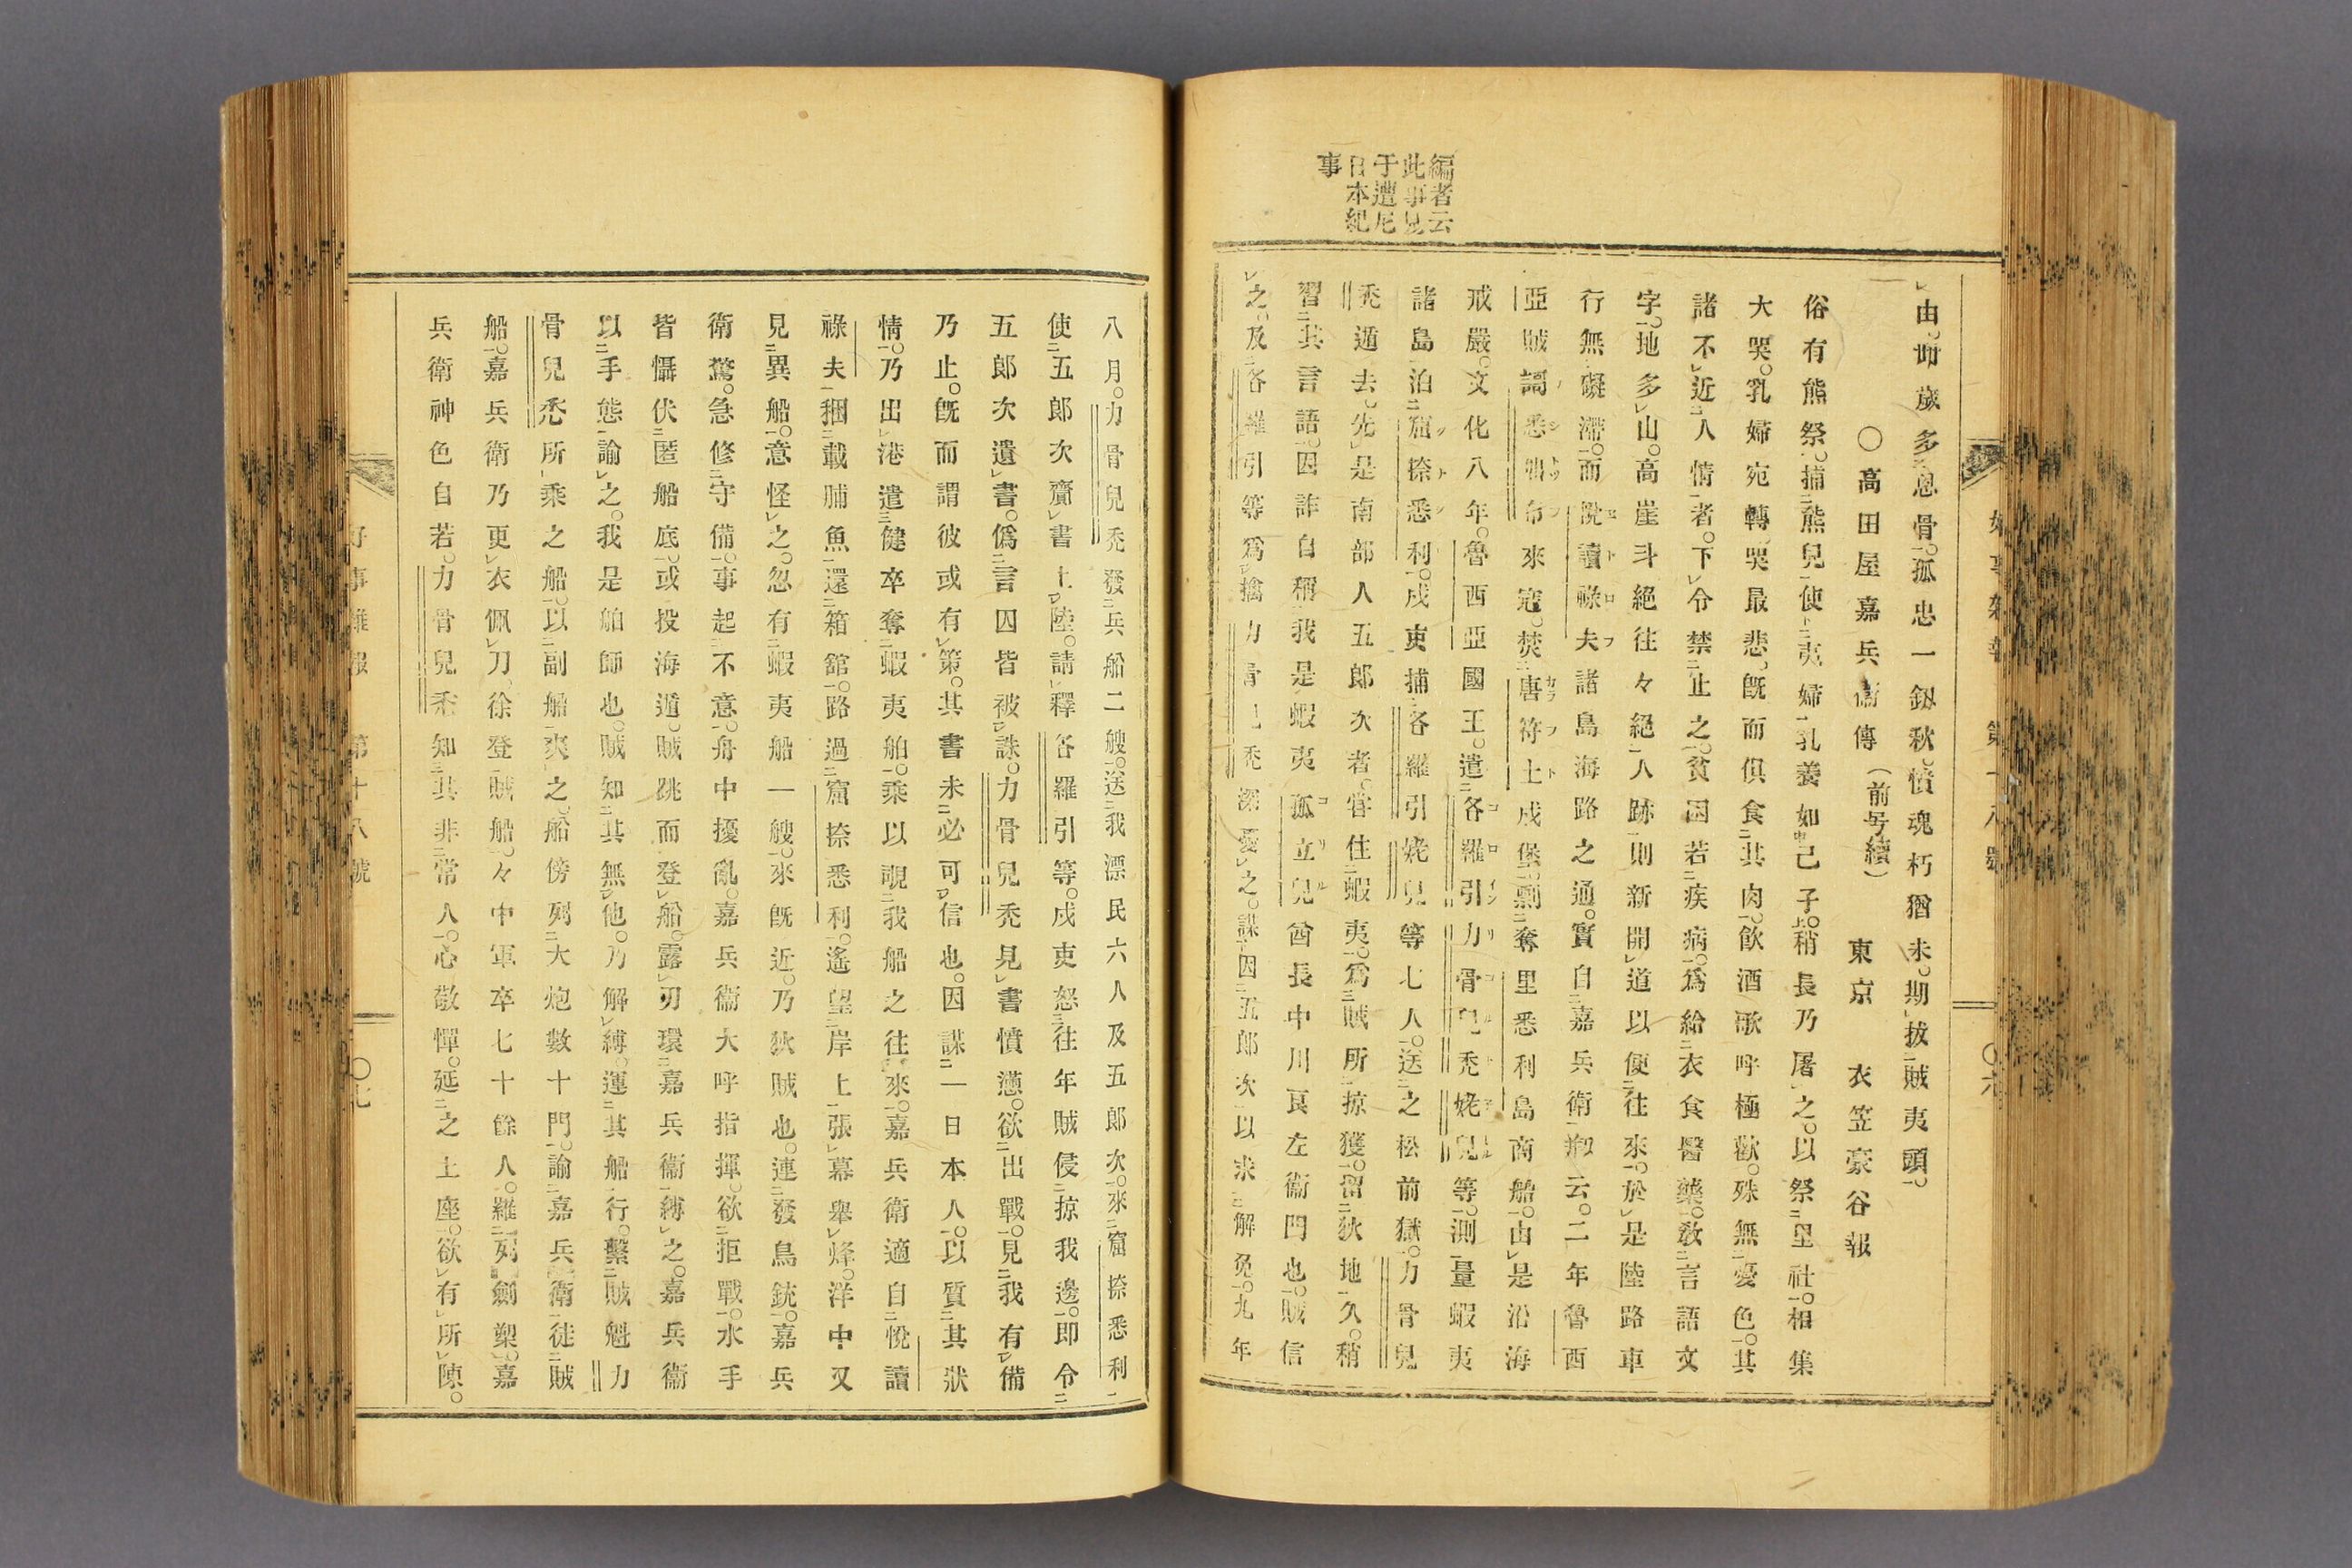 編者云
此事見
于遭厄
日本紀
事
由。卌歲多恩骨。孤忠一釼秋。憤魂朽猶未。期拔賊夷頭。
〇高田屋嘉兵衞傳(前号續) 東京 衣笠豪谷報
俗有熊祭。捕熊兒使夷婦乳養如己子。稍長乃屠之。以祭里社。相集
大哭。乳婦宛轉哭最悲。既而俱食其肉。飮酒歌呼極歡。殊無憂色。其
諸不近人情者。下令禁止之。貧困若疾病。爲給衣食醫藥。敎言語文
字。地多山。高崖斗絕往々絕人跡則新開道以便往來。於是陸路車
行無礙滯。而恱讀祿夫諸島海路之通。實自嘉兵衛剏云。二年魯西
亞賊謁悉咄帋來寇。焚唐符土戍堡。剽奪里悉利島商船。由是沿海
戒嚴。文化八年。魯西亞國王。遣各羅引力骨兒禿姥兒等。測量蝦夷
諸島泊窟捺悉利。戍吏捕各羅引姥兒等七人。送之松前獄。力骨兒
禿遁去。先是南部人五郎次者。甞住蝦夷。爲賊所掠獲。留狄地久。稍
習其言語。因詐自稱我是蝦夷孤立兒酋長中川良左衞門也。賊信
之。及各羅引等爲擒力骨兒禿深憂之。謀因五郎次以求解免。九年
八月。力骨兒禿發兵船二艘。送我漂民六人及五郎次。來窟捺悉利
使五郎次齎書上陸。請釋各羅引等。戍吏怒往年賊侵掠我邊。即令
五郎次遺書。僞言囚皆被誅。力骨兒禿見書憤懣。欲出戰。見我有備
乃止。既而謂彼或有策。其書未必可信也。因謀一日本人。以質其狀
情。乃出港遣健卒奪蝦夷舶。乘以覗我船之往來。嘉兵衛適自恱讀
祿夫捆載脯魚還箱舘。路過窟捺悉利。遙望岸上張幕舉烽。洋中又
見異船。意怪之。忽有蝦夷船一艘。來既近。乃狄賊也。連發鳥銃。嘉兵
衛驚。急修守備。事起不意。舟中擾亂。嘉兵衞大呼指揮。欲拒戰。水手
皆懾伏匿船底。或投海遁。賊跳而登船。露刃環嘉兵衞縛之。嘉兵衞
以手態諭之。我是舶師也。賊知其無他。乃解縛。運其船行。繫賊魁力
骨兒禿所乘之船。以副船夾之。船傍列大炮數十門。諭嘉兵衛徒賊
船。嘉兵衛乃更衣佩刀。徐登賊船。々中軍卒七十餘人。羅列劍槊。嘉
兵衛神色自若。力骨兒禿知其非常人。心敬憚。延之上座。欲有所陳。
好事雜報 第十八號 〇七